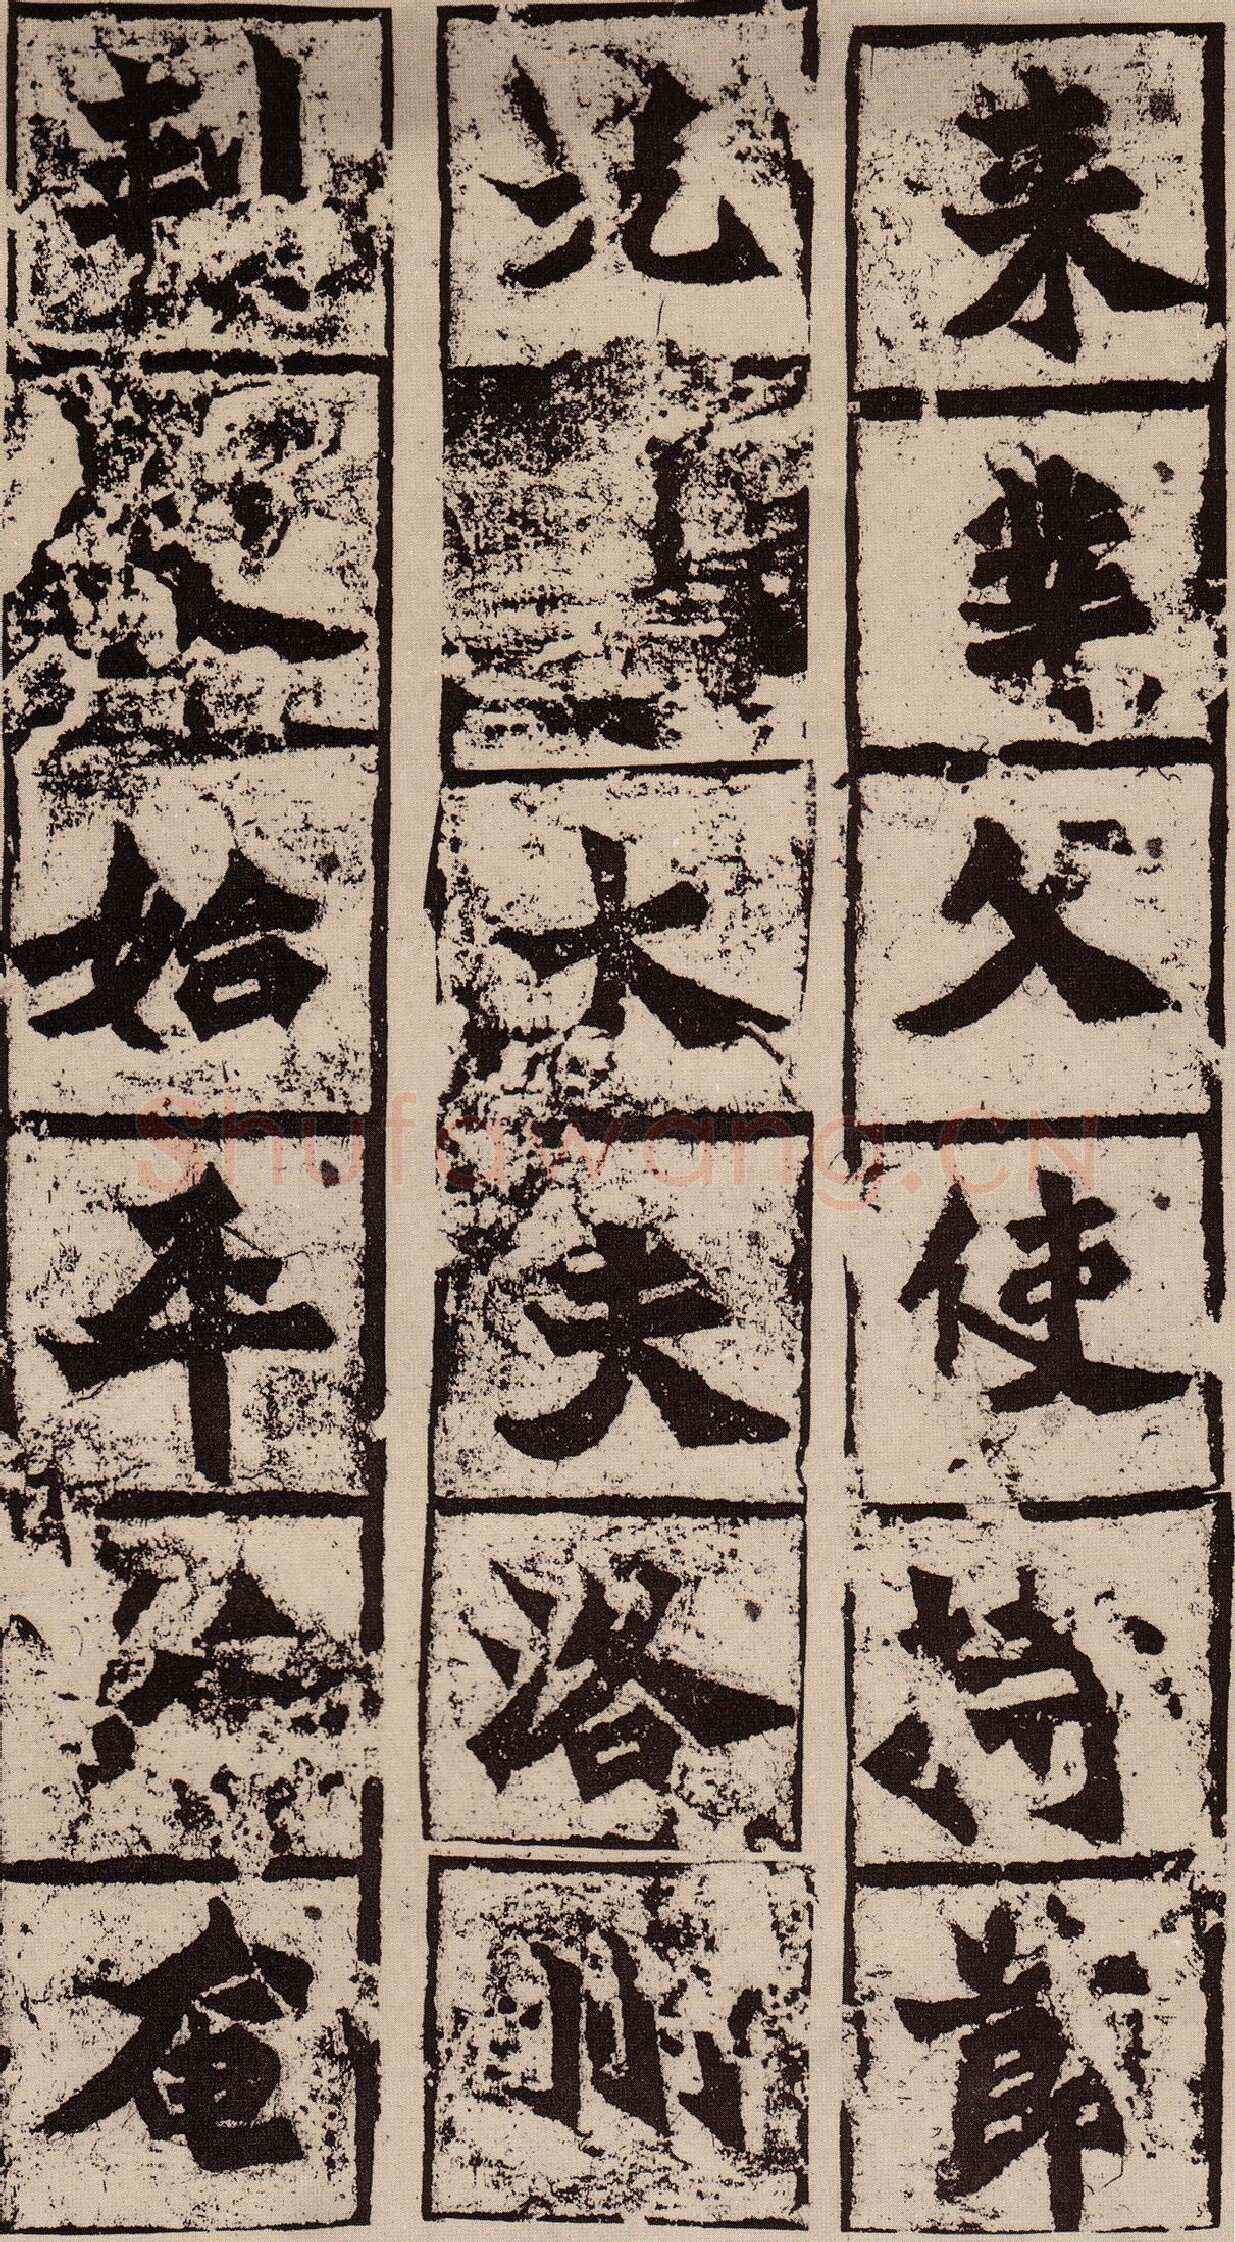 来業父使持節
光大夫洛州
刺史始平公奄
Shufawang.CN